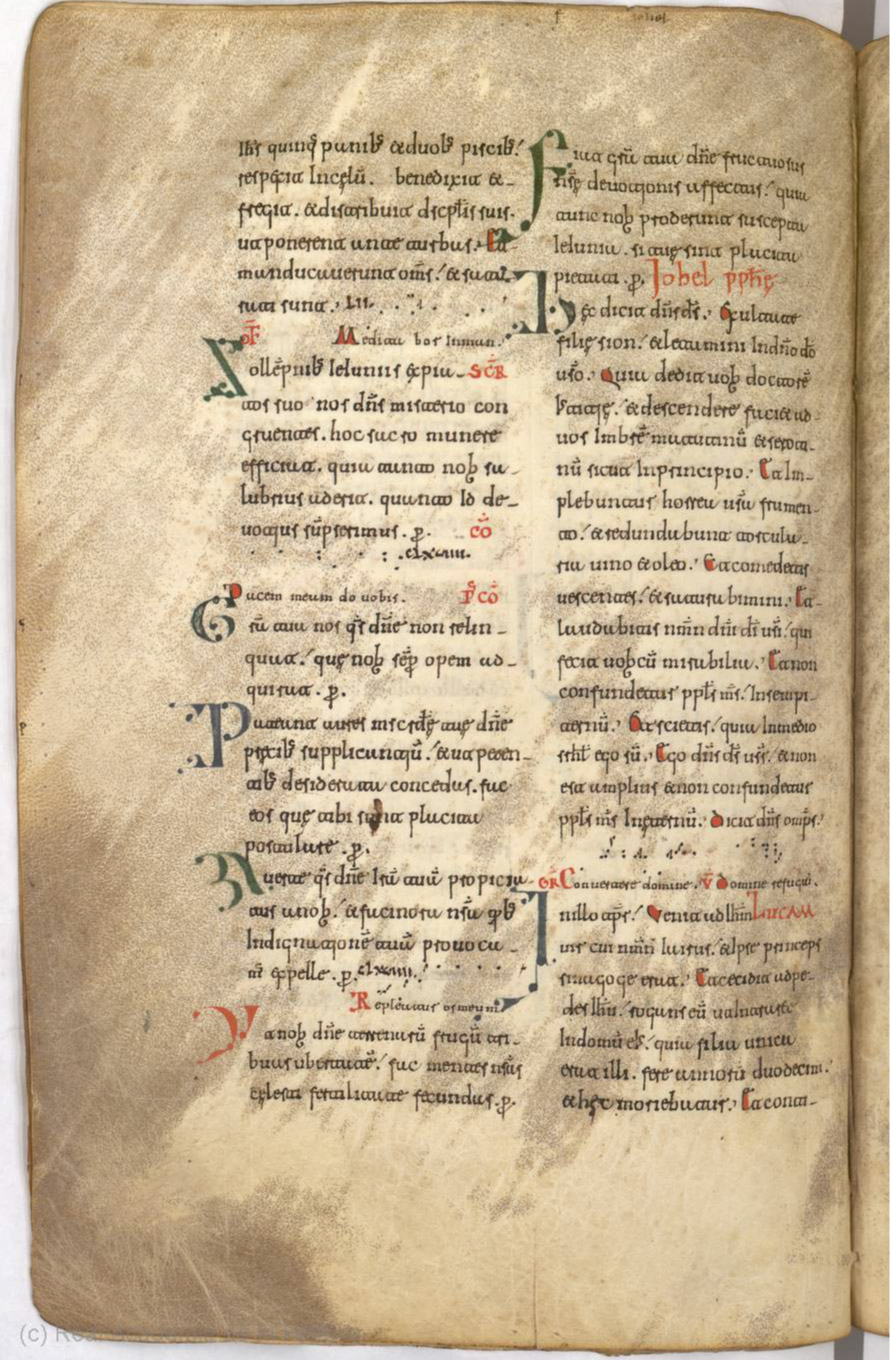 Ihs quinq panib; & duob; piscib;
respexit In celū. benedixit &
fregit. & distribuit discplis suis.
ut ponerent ante turbas. Et
manducauerunt oms. & satu
rati sunt. LII.
of Meditabor In man.
Sollēpnib; Ieiuniis expia SCR
tos suo nos dñs misterio con
gruentes. hoc sacro munere
efficiat. quia tanto nob su
lubrius aderit. quanto Id de
uotius sūpserimus. p. cō
clxiiii.
Pucem meum do uobis. Pcō
Gsū tuu nos qs dñe non relin
quat. que nob sēp opem ad
quirat. p.
Puteant aures mscde tue dñe
precib; supplicantiū. & ut peten
tib; desiderata concedas. fac
eos que tibi sunt placita
postulare. p.
Auerte qs dñe Irā tuā propicia
tus a nob. & facinora nra qb
Indignationē tuā prouoca
m expelle. p. clxiiii.
Repleatur os meum
Da nob dñe terrenarū frugū tri
buas ubertatē. fac mentes nras
celesti fertilitate fecundas. p.
Fiat gsū tua dñe fructuosus
nre deuotionis affectus. quia
tunc nob proderunt suscepta
Ieiunia. si tue sint placita
pietati. p. Iohel pphe
Hec dicit dñs ds. Exultate
filie sion. & letamini In dño do
uro. Quia dedit uob doctorē
Iusticie. & descendere faciet ad
uos Imbrē matutinū & seroti
nū sicut In principio. Et Im
plebuntur horrea urā frumen
to. & redundabunt torcula
ria uino & oleo. Et comedetis
uescentes. & saturabimini. Et
laudabitis nmn dni di uri. qui
fecit uobcū mirabilia. Et non
confundetur ppls ms. In sempi
ternū. Et scietis. quia In medio
srhl ego sū. Ego dñs ds ur. & non
est amplius & non confundetur
ppls ms In eternū. Dicit dñs omps.
GR Conuertere domine. V Domine refugiū.
In illo tps. Venit ad Ihm LUCAM
uir cui nmn Iairus. & Ipse princeps
sinagoge erat. Et cecidit ad pe
des Ihu. rogans eū ut Intraret
In domū eis. quia filia unica
erat illi. fere annorū duodecim.
& hec moriebatur. Et conti